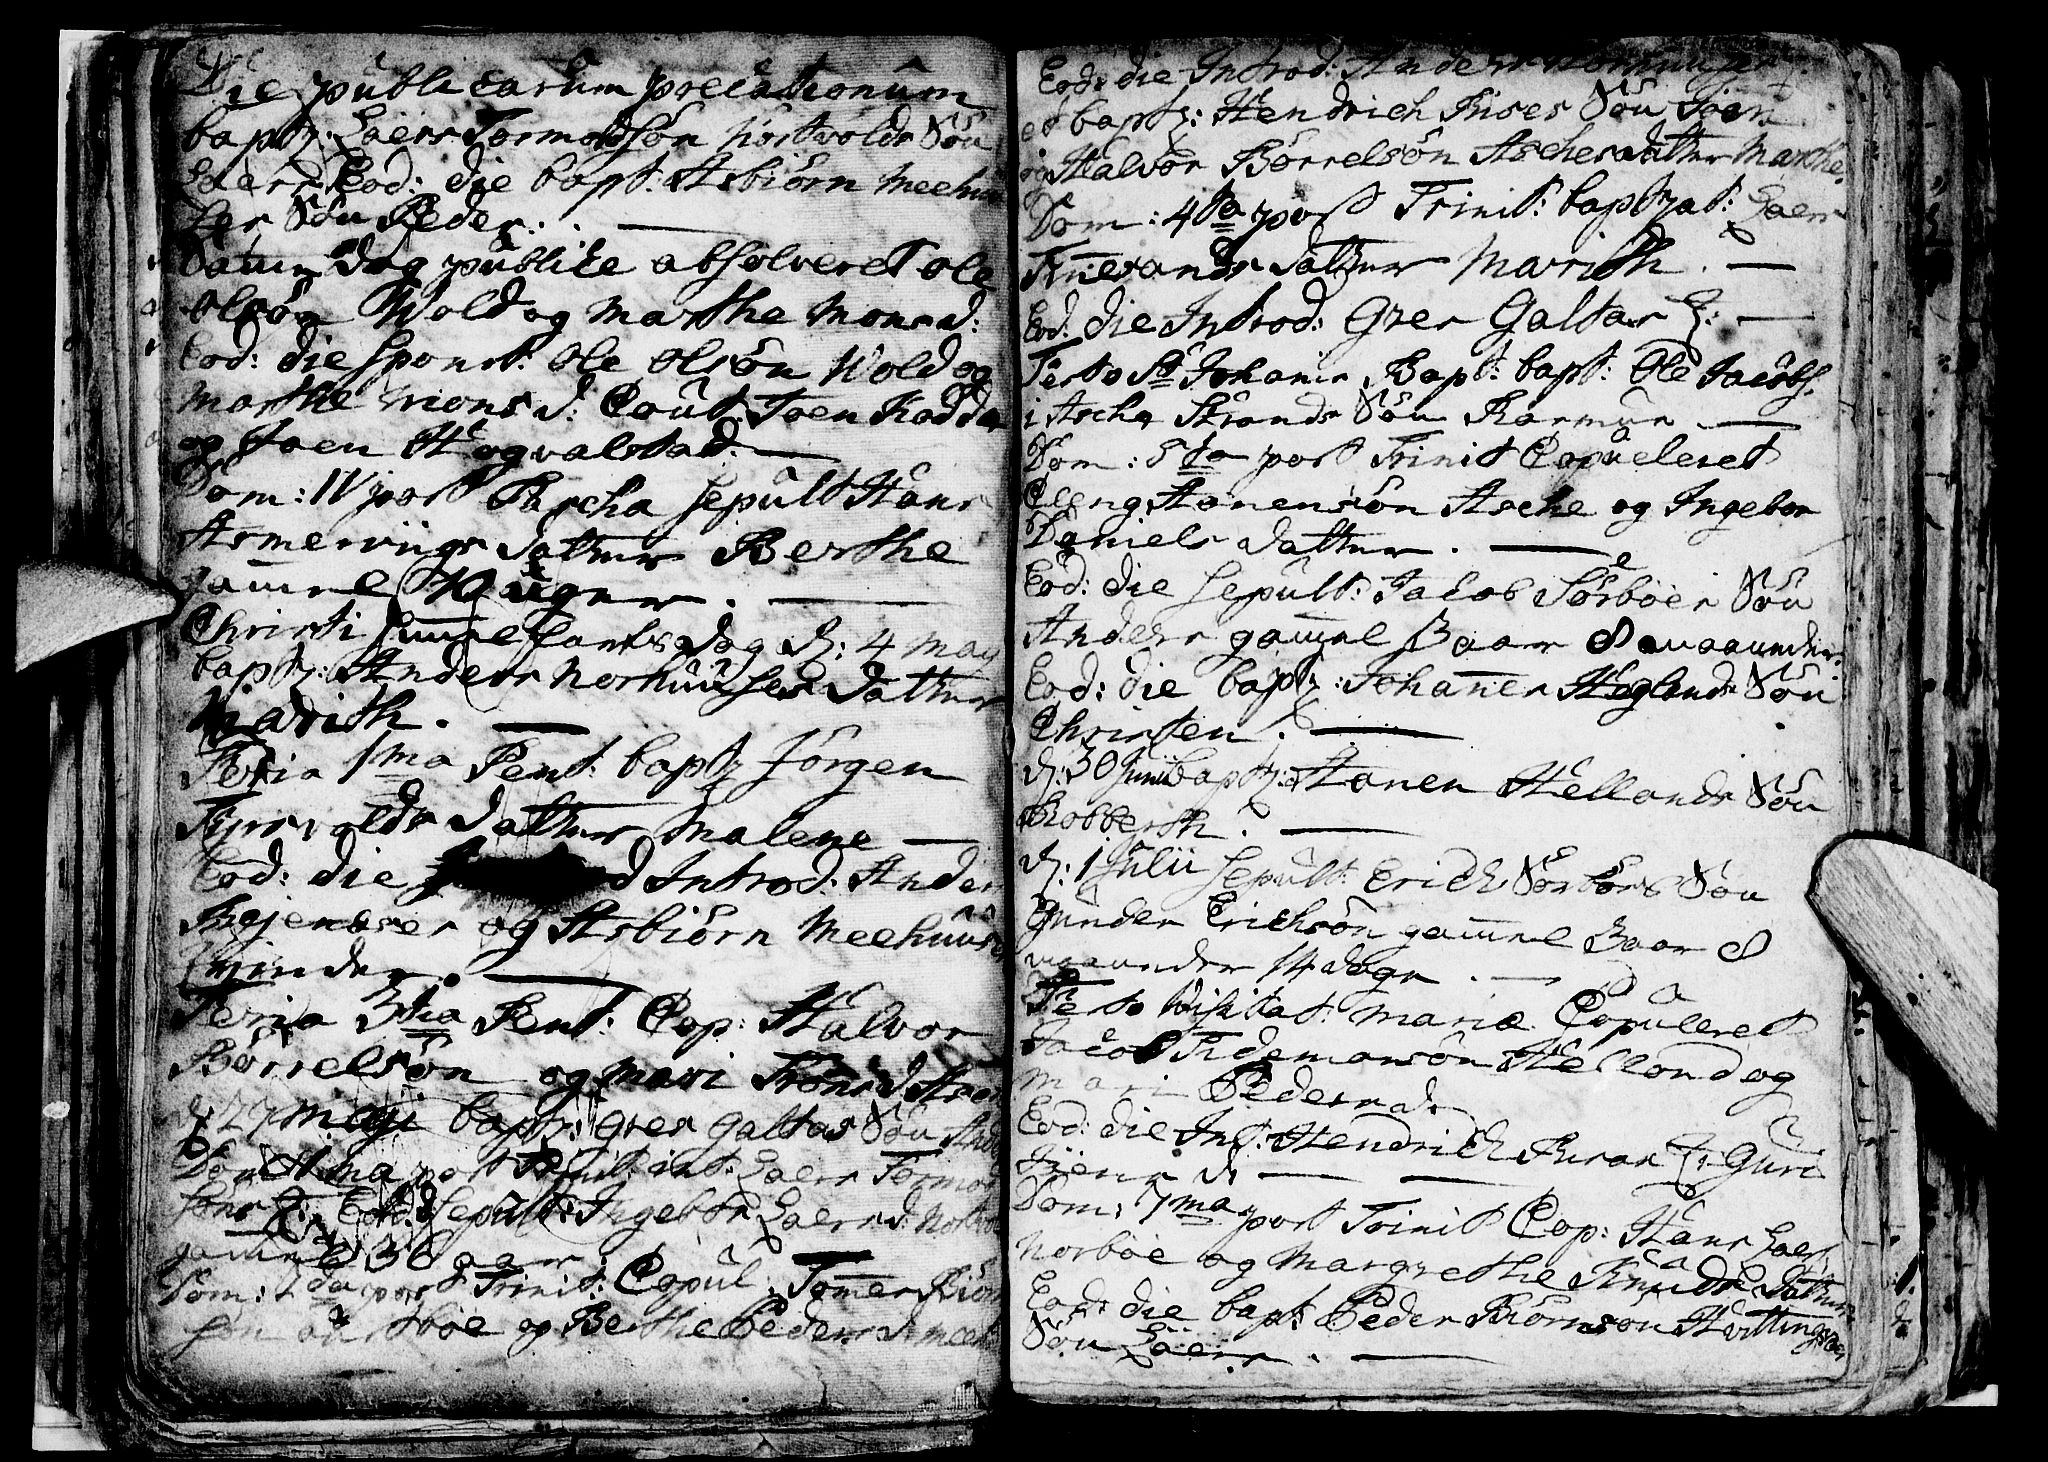 Die publicarum precationum
baptz: Laers Tormodsøn Nortvolds Søn
Laers Eod: die bapt: Asbiørn Meehuu
ser Søn Peder. —
Samme Dag publice absolveret Ole
Olsøn Wold og Marthe Mons d:
Eod: die spons: Ole Olsøn Wold og
Marthe Mons d: Caut: Joen Kodda
og Joen Hogvalstad. —
Dom: IV post Pascha sepult Hans
Asmervigs datter Berthe
gamel 10 uger. —
Christi Himmelfarts Dag d: 4 May
baptz: Anders Norhuuses datter
Marith. —
Feria 1ma Pent: baptz Jørgen
Tyrsvolds datter Malene —
Eod: die Introd: Anders
og Asbiørn Meehuuses
qvinder. —
Feria 3tia Pent: Cop: Halvor
Børrelsøn og Mari Trons d Asche
d 27 Maji baptz: Gres Galtas Søn
Dom 1ma post Trinit: int: Laers Tormod
søns Q: Eod: d sepult: Ingebor Laers d:
gamel 36 aar
Dom: 2da post Trinit: Copul: Tomes
søn og Berthe Peders d
Eod: die Introd: Anders
et baptz: Hendrich Rises Søn Joen
og Halvor Børrelsøn Asches datter Marthe.
Dom: 4ta post Trinit: baptzat: Laers
datter Marith. —
Eod: die Introd: Gres Galtar Q: —
Festo St Johanis Bapt: bapt: Ole Jacobs.
i Asche Strands Søn Rasmus —
Dom: 5ta post Trinit Copuleret
Eling Hanensøn Asche og Ingebor
Daniels datter. —
Eod: die sepult: Jacob Sørbøes Søn
Anders gamel 3 aar 8 maaneder.
Eod: die baptz: Johannes Heglands Søn
Christen. —
d: 30 Junii baptz: Hanen Hellands Søn
Robberth. —
d: 1 Julii sepult: Erich Sørbøes Søn
Gunder Erichsøn gamel 3 aar 8
maaneder 14 dage. —
Festo Visitat: Mariæ Copuleret
Jacob Tidemansøn Helland og
Mari Peders d:
Eod: die Int: Hendrich Risas Q: Guri
d —
Dom: 7ma post Trinit Cop: Hans Laers:
Norbøe og Margrethe Knuds Datter
Eod: die bapt: Peder Biørnsøn Hvittingsøes
Søn Laers. —